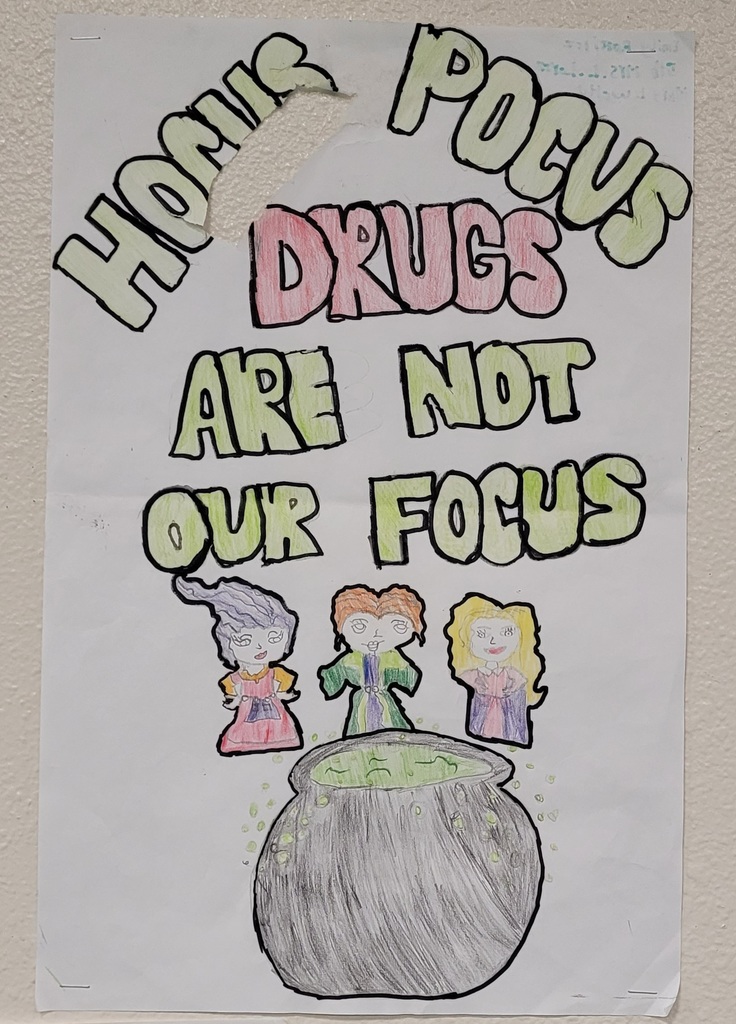 HOCUS POCUS
DRUGS
ARE NOT
OUR FOCUS